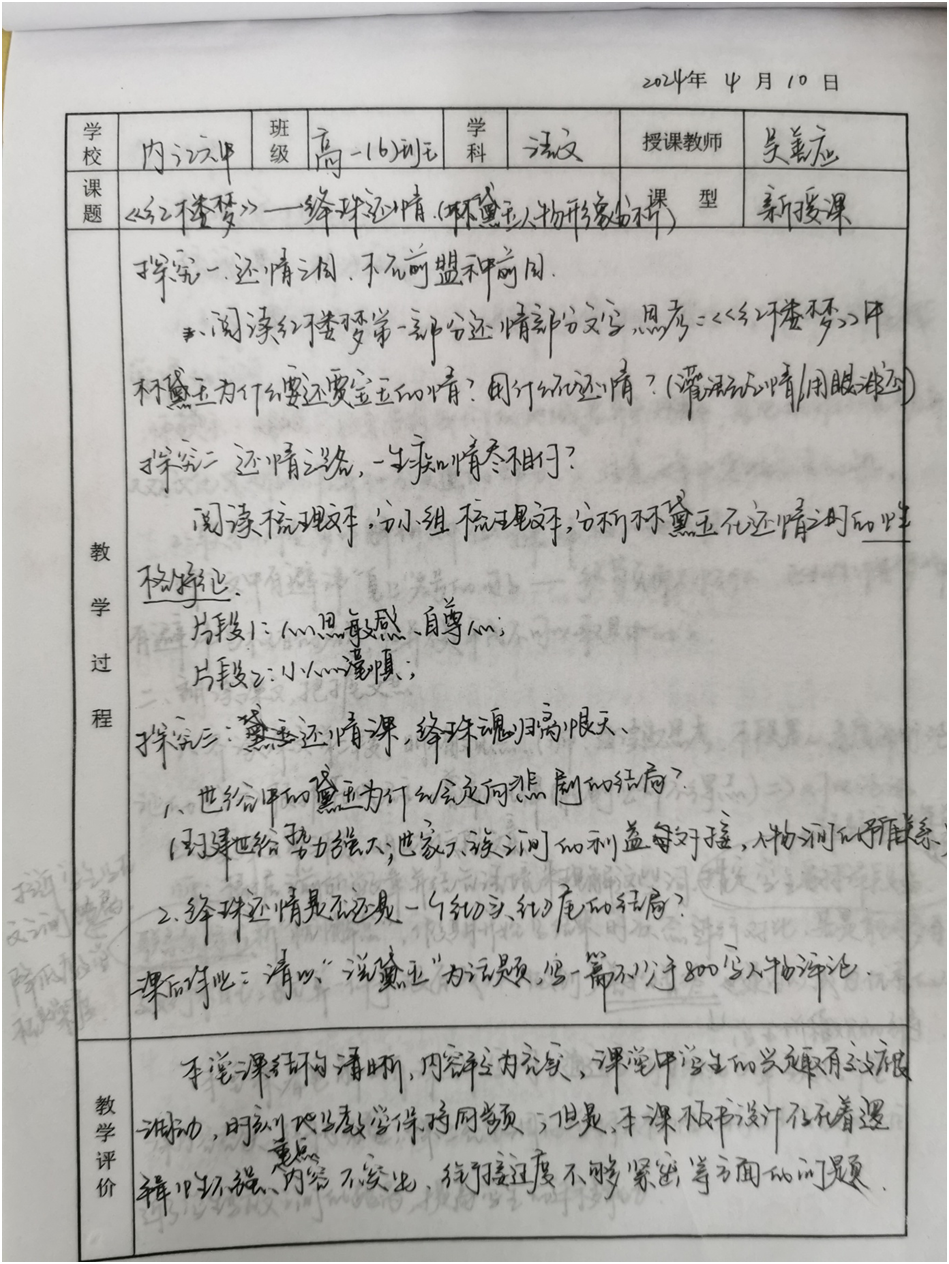 2024年 4 月 10 日
学校 内江六中 班级 高一(6)班 学科 语文 授课教师 吴善应
课题 《红楼梦》——绛珠还情.(林黛玉人物形象分析) 课型 新授课
教学过程
探究一 还情之因、木石前盟和前因.
阅读红楼梦第一部分还情部分文字,思考:《红楼梦》中
林黛玉为什么要还贾宝玉的情?用什么还情?(灌溉之情/用眼泪还)
探究二 还情之路,一生痴情尽相付?
阅读梳理文本,分小组梳理文本,分析林黛玉在还情之时的性
格特征.
片段1:心思敏感、自尊心;
片段2:小心谨慎;
探究三:黛玉还情课,绛珠魂归离恨天.
1、世俗中的黛玉为什么会走向悲剧的结局?
(封建世俗势力强大;世家大族之间的利益对接,人物间的矛盾关系
2.绛珠还情是否还是一个彻头彻尾的结局?
课后作业:请以“说黛玉”为话题,写一篇不少于800字人物评论.
教学评价
本堂课结构清晰,内容较为充实,课堂中学生的兴趣有效被
调动,时刻地与教学保持同频;但是,本课板书设计存在着逻
辑性不强、重点内容不突出,衔接过度不够紧密等方面的问题.